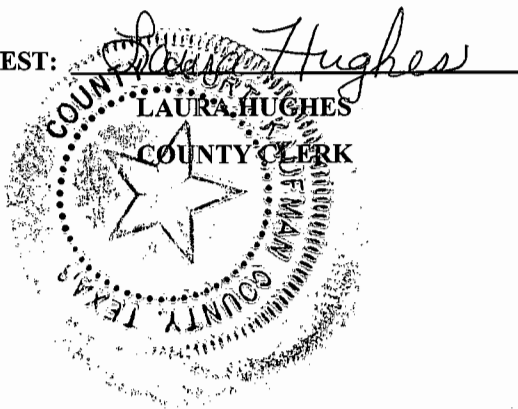 EST: Laura Hughes
LAURA HUGHES
COUNTY CLERK
COUNTY COURT KAUFMAN COUNTY, TEXAS